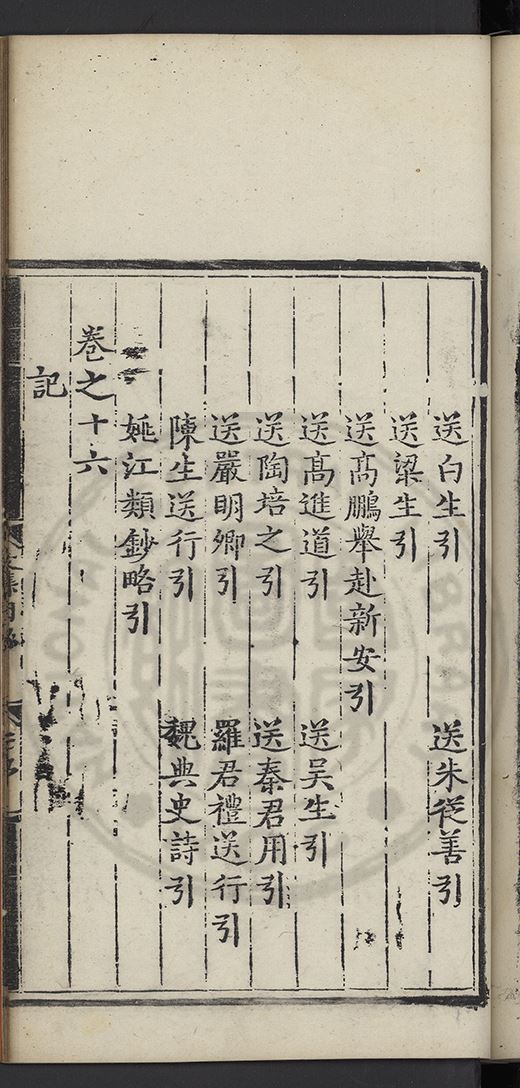 送白生引　送朱從善引
送梁生引
送髙鵬舉赴新安引
送髙進道引　送吴生引
送陶培之引　送秦君用引
送嚴明卿引　羅君禮送行引
陳生送行引　魏典史詩引
姚江類鈔略引
卷之十六
記